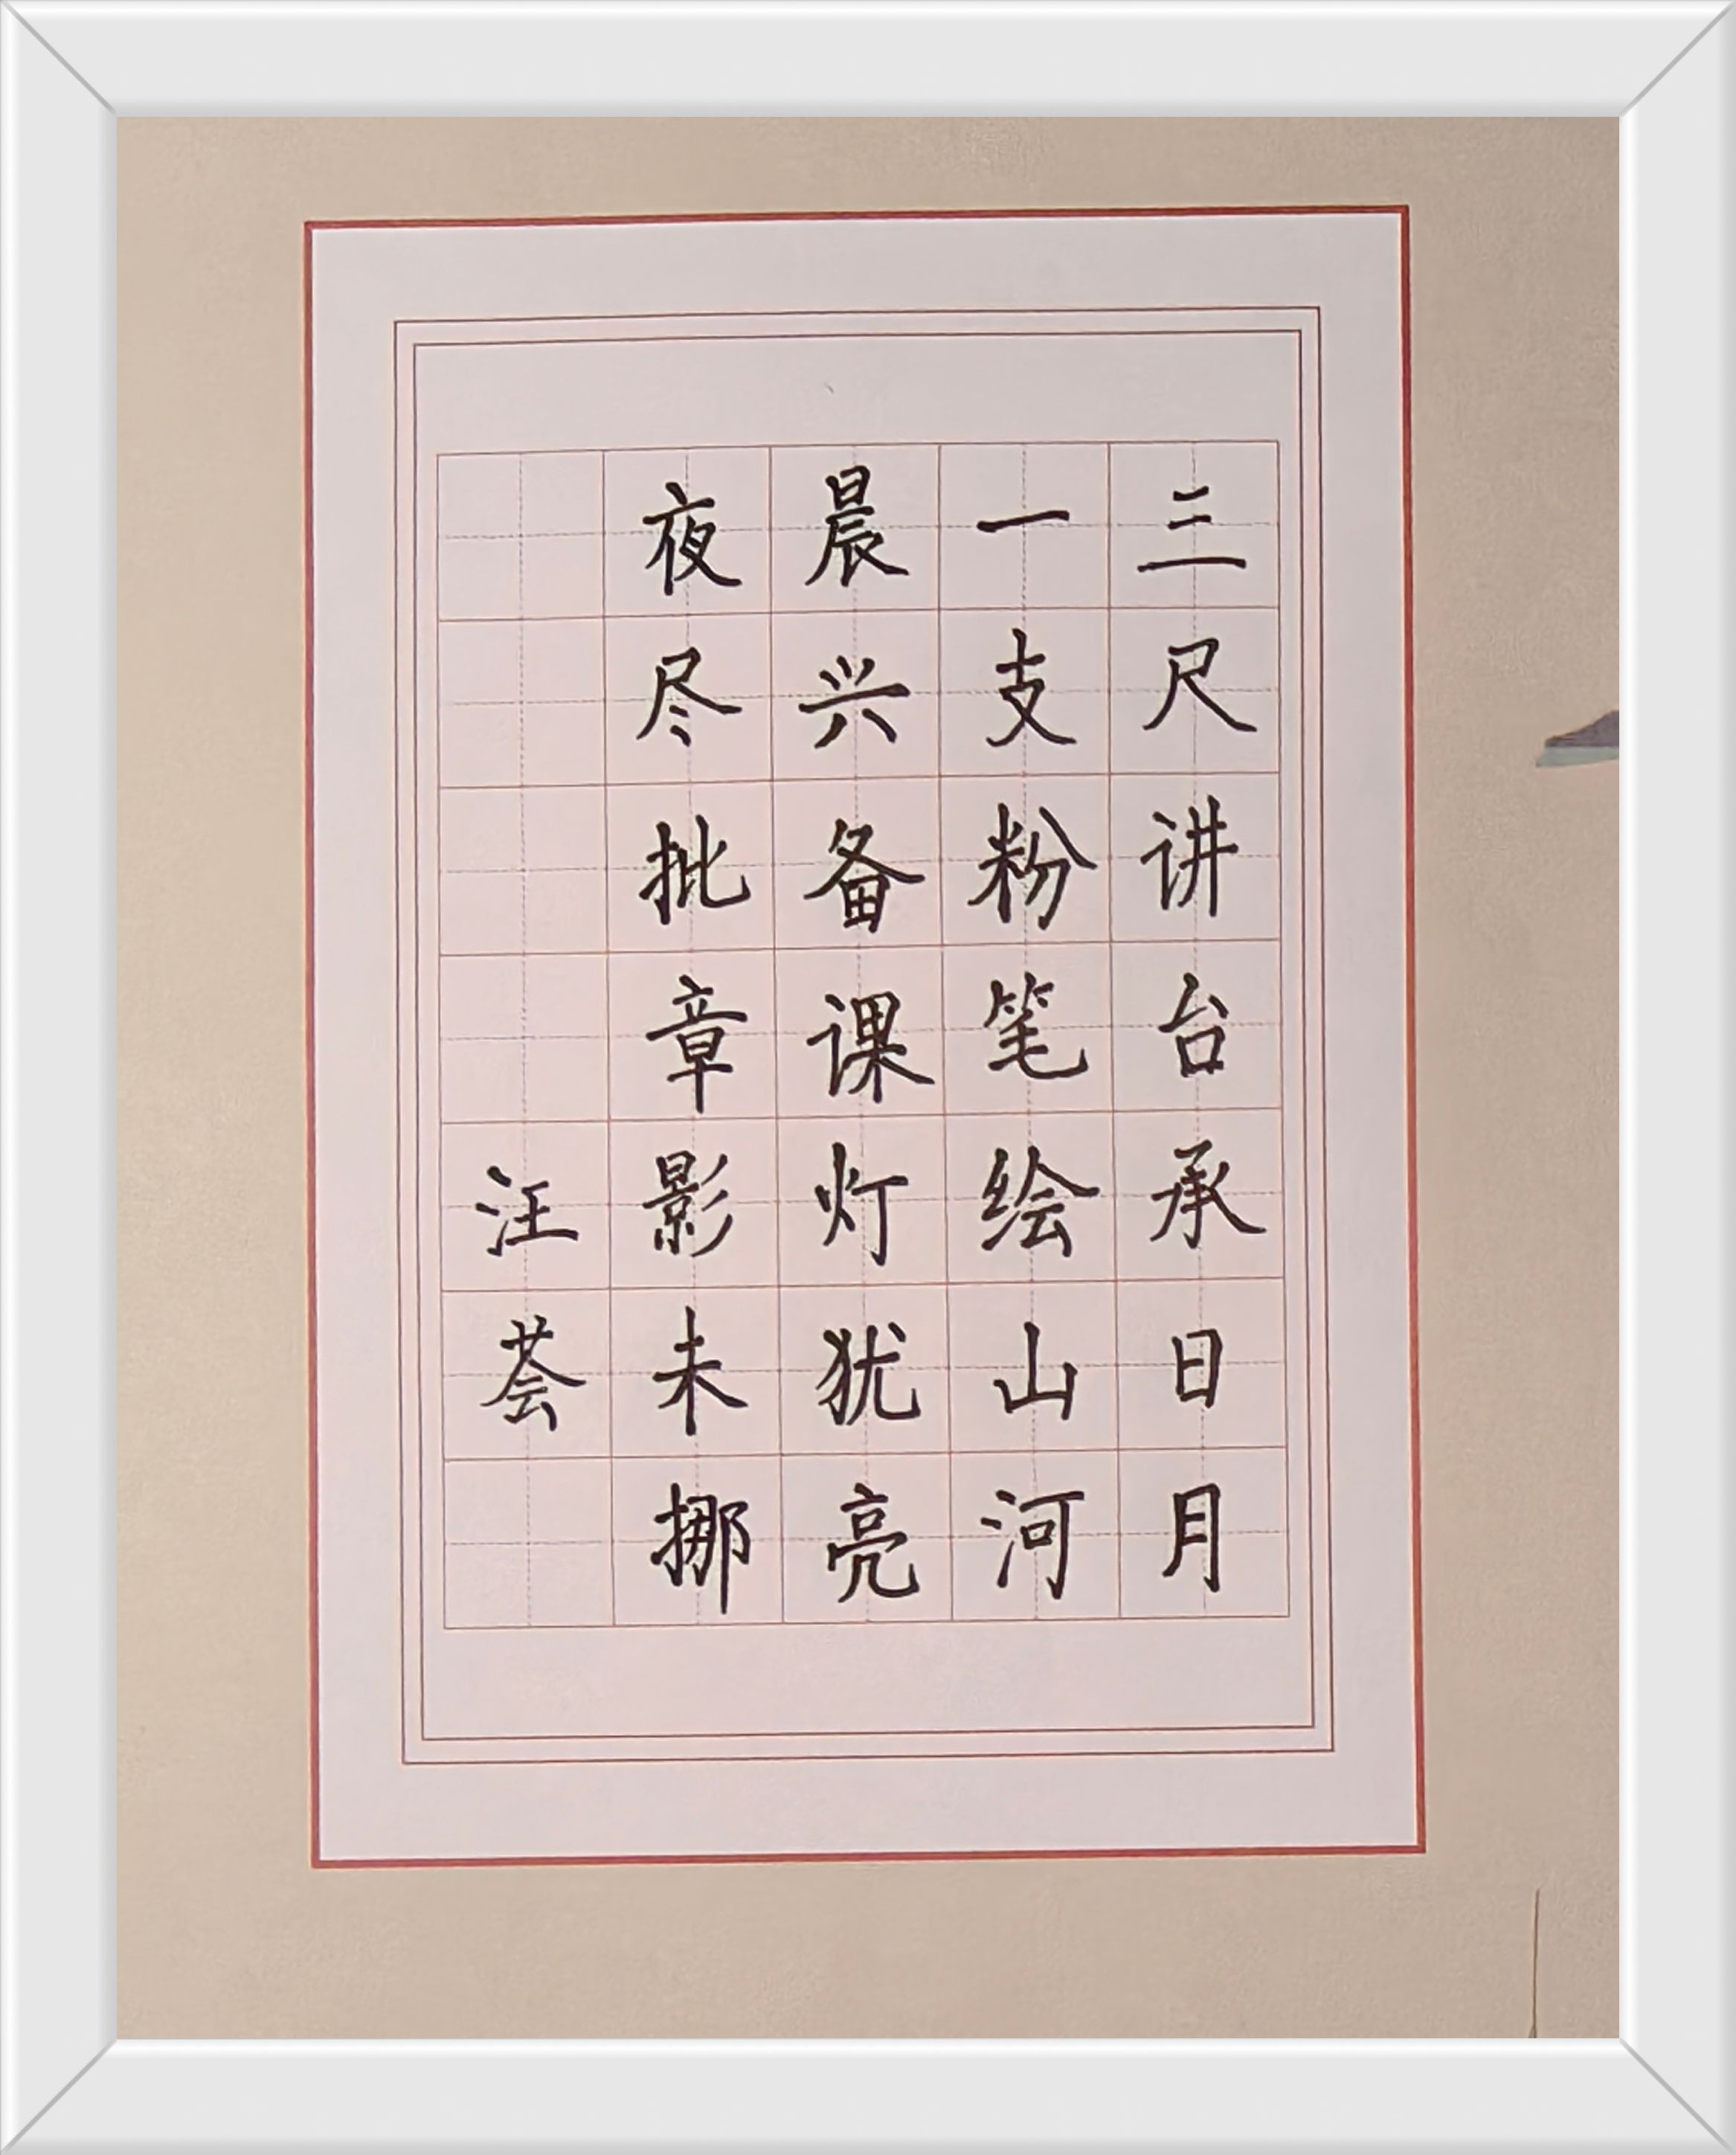 三尺讲台承日月
一支粉笔绘山河
晨兴备课灯犹亮
夜尽批章影未挪
汪荟